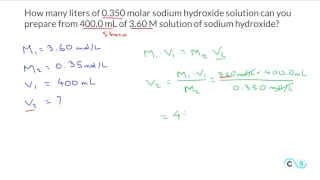 How many liters of 0.350 molar sodium hydroxide solution can you
prepare from 400.0 mL of 3.60 M solution of sodium hydroxide?
Stock
M₁ = 3.60 mol/L
M₂ = 0.35 mol/L
V₁ = 400 mL
V₂ = ?
M₁ V₁ = M₂ V₂
V₂ = M₁ V₁ / M₂ = 3.60 mol/L × 400.0 mL / 0.350 mol/L
= 4
C S